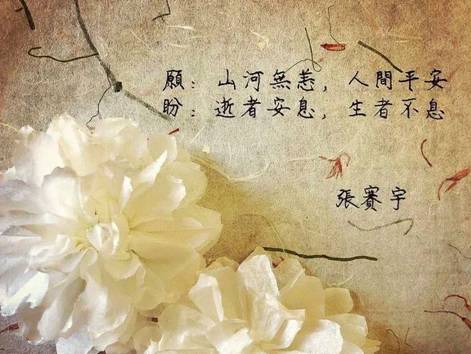 願：山河無恙，人間平安
盼：逝者安息，生者不息
張賽宇